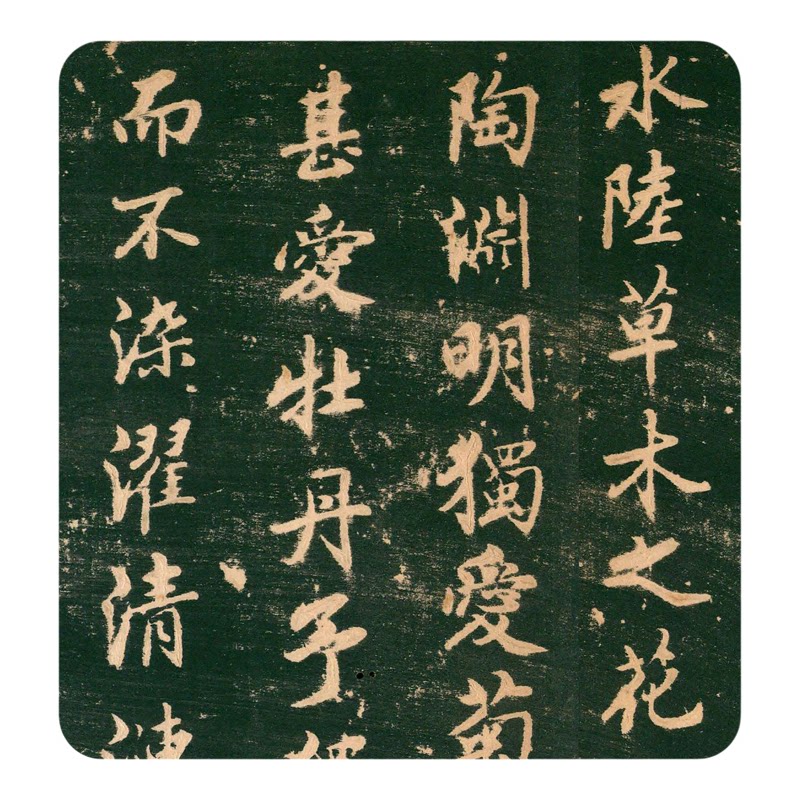 水陸草木之花
陶淵明獨愛菊
甚愛牡丹予獨
而不染濯清漣